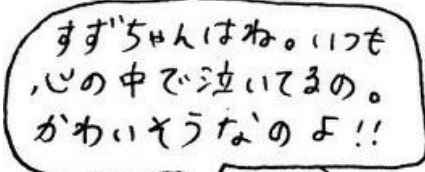 すずちゃんはね。いつも
心の中で泣いてるの。
かわいそうなのよ!!